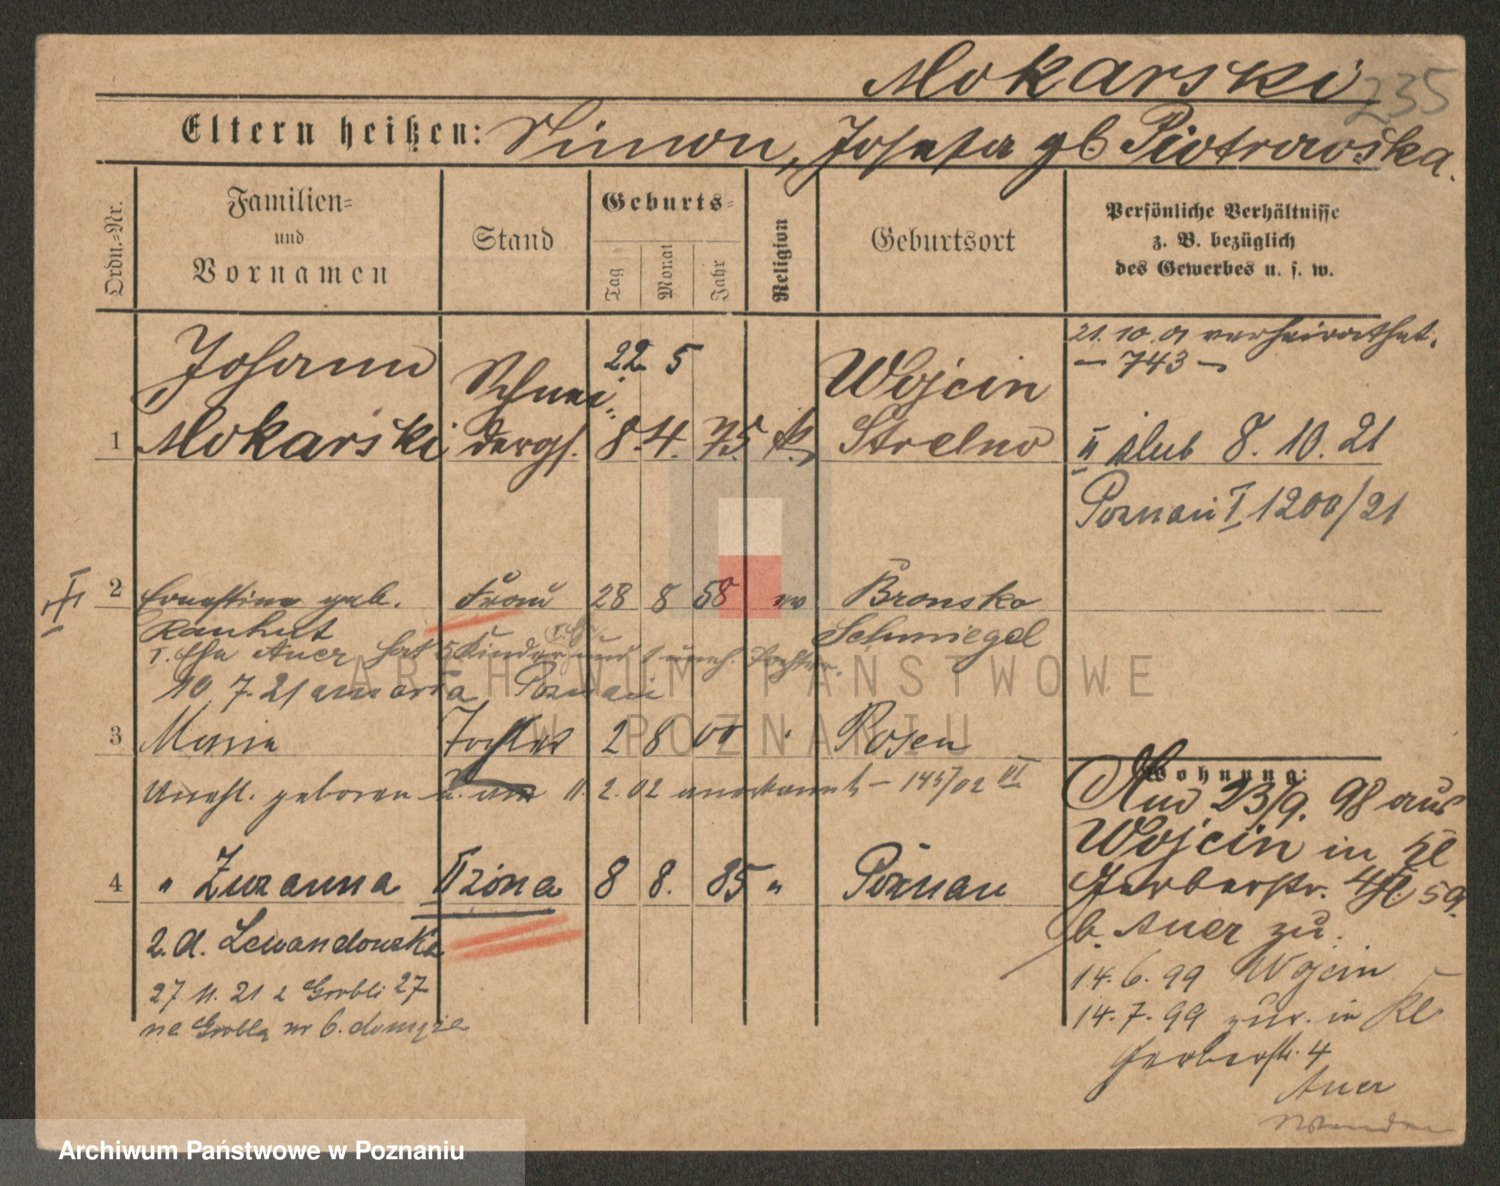 Mokarski
235
Eltern heißen: Simon, Josefa gb Piotrowska.
Ordn.-Nr.
Familien-
und
Vornamen
Stand
Geburts-
Tag
Monat
Jahr
Religion
Geburtsort
Persönliche Verhältnisse
z. B. bezüglich
des Gewerbes u. s. w.
21. 10. 01 verheirathet.
— 743 —
Johann
Schnei-
22. 5
Wojcin
1 Mokarski
dergs. 8. 4. 75 k.
Strelno
II ślub 8. 10. 21
Poznań I 1200/21
2 Ernestine geb. Frau 28 8 58 ev Bronsko
Rauhut
Schmiegel
I. Ehe Auer hat 5 Kinder und 1 uneh. Tochter.
10. 7. 21 umarła Poznań
3 Maria Tochter 2 8 00 Posen
Unehl. geboren u. am 11. 2. 02 anerkannt — 145/02 VI
4 " Zuzanna II żona 8 8. 85 " Poznań
2. d. Lewandowska
27. 11. 21 z Grobli 27
na Groblę nr 6.
Wohnung:
23/9. 98 aus
Wojcin in kl
Gerberstr. 4
b. Auer zu.
14. 6. 99 Wojcin
14. 7. 99 zur. in Kl
Gerberstr. 4
Auer
ARCHIWUM PAŃSTWOWE
W POZNANIU
Archiwum Państwowe w Poznaniu